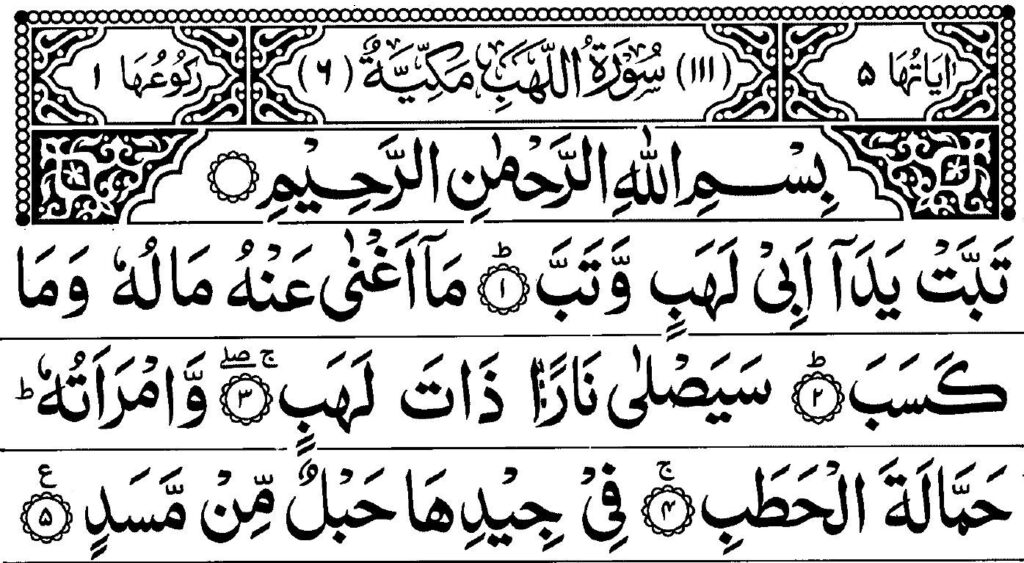 اٰيَاتُهَا ٥ (١١١) سُوْرَةُ اللَّهَبِ مَكِّيَّةٌ (٦) رُكُوْعُهَا ١
بِسْمِ اللّٰهِ الرَّحْمٰنِ الرَّحِيْمِ
تَبَّتْ يَدَآ اَبِيْ لَهَبٍ وَّتَبَّ ؕ﴿۱﴾ مَاۤ اَغْنٰى عَنْهُ مَالُهٗ وَمَا
كَسَبَ ؕ﴿۲﴾ سَيَصْلٰى نَارًا ذَاتَ لَهَبٍ ۚۖ﴿۳﴾ وَّامْرَاَتُهٗ ؕ
حَمَّالَةَ الْحَطَبِ ۚ﴿۴﴾ فِيْ جِيْدِهَا حَبْلٌ مِّنْ مَّسَدٍ ﴿۵﴾ ع